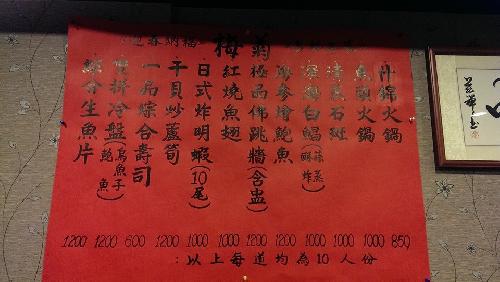 迎春納福
梅菊
什錦火鍋
魚頭火鍋
清蒸石斑
深海白鯧(蒜蒸
酥炸)
海參燴鮑魚
極品佛跳牆(含盅)
紅燒魚翅
日式炸明蝦(10尾)
干貝炒蘆筍
一品綜合壽司
雙拼冷盤(烏魚子
鮑魚)
綜合生魚片
1200 1200 600 1200 1000 1000 1200 1200 1000 1000 1000 850
:以上每道均為10人份